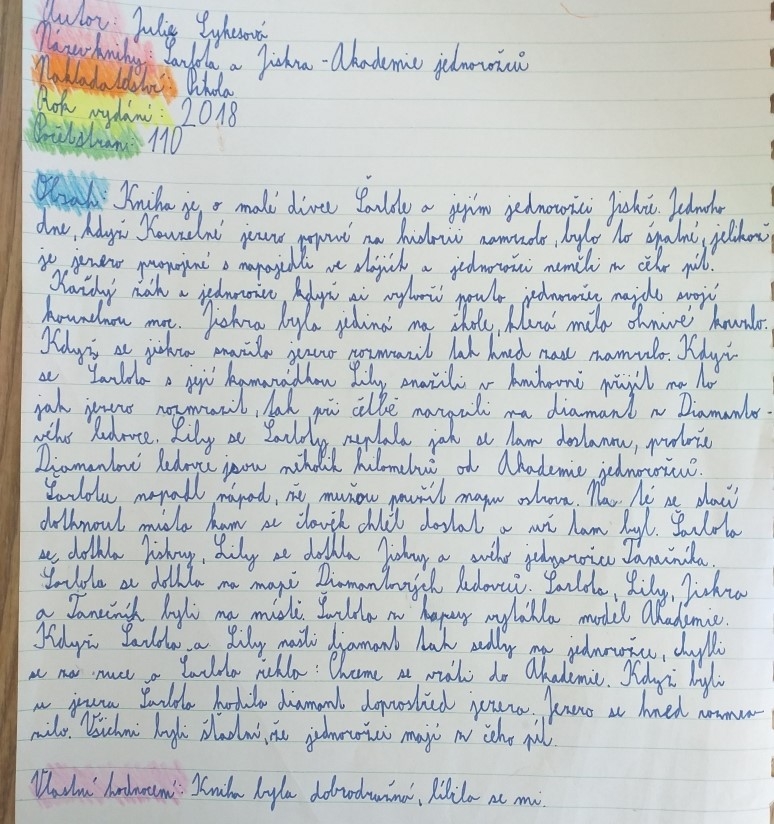 Autor: Julie Sykesová
Název knihy: Šarlota a Jiskra - Akademie jednorožců
Nakladatelství: Pikola
Rok vydání: 2018
Počet stran: 110
Obsah: Kniha je o malé dívce Šarlotě a jejím jednorožci Jiskře. Jednoho
dne, když Kouzelné jezero poprvé za historii zamrzlo, bylo to špatné, jelikož
je jezero propojené s napajedli ve stájích a jednorožci neměli z čeho pít.
Každý žák a jednorožec když si vytvoří pouto jednorožec najde svojí
kouzelnou moc. Jiskra byla jediná na škole, která měla ohnivé kouzlo.
Když se jiskra snažila jezero rozmrazit tak hned zase zamrzlo. Když
se Šarlota s její kamarádkou Lily snažili v knihovně přijít na to
jak jezero rozmrazit, tak při četbě narazili na diamant z Diamanto-
vého ledovce. Lily se Šarloty zeptala jak se tam dostanou, protože
Diamantové ledovce jsou několik kilometrů od Akademie jednorožců.
Šarlotu napadl nápad, že mužou použít mapu ostrova. Na té se stačí
dotknout místa kam se člověk chtěl dostat a už tam byl. Šarlota
se dotkla Jiskry, Lily se dotkla Jiskry a svého jednorožce Tanečníka.
Šarlota se dotkla na mapě Diamantových ledovců. Šarlota, Lily, Jiskra
a Tanečník byli na místě. Šarlota z kapsy vytáhla model Akademie.
Když Šarlota a Lily našli diamant tak sedly na jednorožce, chytli
se za ruce a Šarlota řekla: Chceme se vrátit do Akademie. Když byli
u jezera Šarlota hodila diamant doprostřed jezera. Jezero se hned rozmra
zilo. Všichni byli šťastní, že jednorožci mají z čeho pít.
Vlastní hodnocení: Kniha byla dobrodružná, líbila se mi.